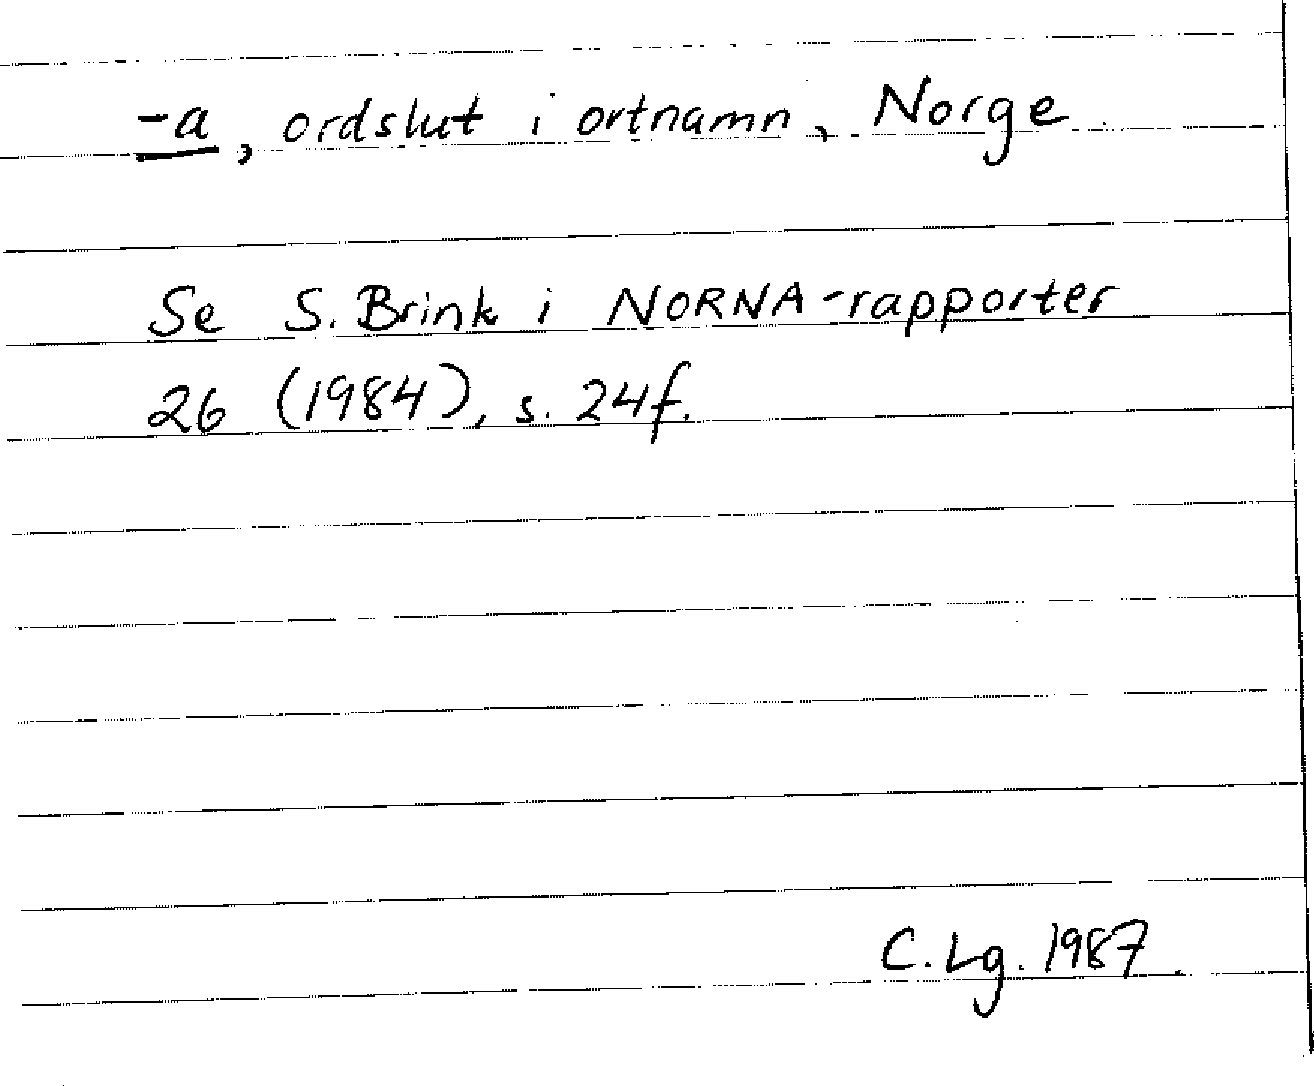 -a, ordslut i ortnamn, Norge
Se S. Brink i NORNA-rapporter
26 (1984), s. 24f.
C. Lg. 1987